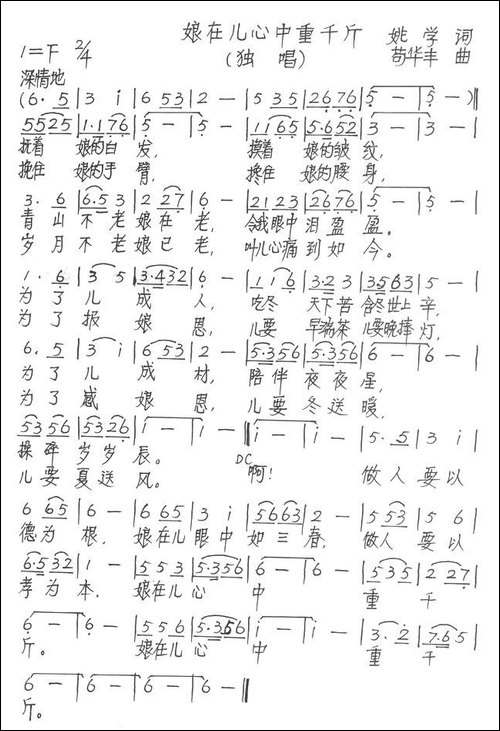 娘在儿心中重千斤
姚学词
1=F 2/4
(独唱)
苟华丰曲
深情地
(6. 5 | 3 i | 6 53 | 2 — | 5 35 | 2676 | 5 — | 5 — )‖
5525 | 1·176 | 5 — | 5 · | 1165 | 5·652 | 3 — | 3 — |
抚着 娘的白 发, 摸着 娘的皱 纹,
挽住 娘的手 臂, 搀住 娘的腰 身,
3. 6 | 6·53 | 2 27 | 6 — | 2123 | 2676 | 5 — | 5 — |
青山不老娘在老, 令我眼中泪盈盈。
岁月不老娘已老, 叫儿心痛到如今。
1. 6 | 3 5 | 3·432 | 6 — | 1 i 6 | 3·23 | 3563 | 5 — |
为了儿成人, 吃冬 天下苦 含冬世上辛,
为了报娘恩, 儿要 早端茶 儿要晚捧灯,
6. 5 | 3 i | 6 53 | 2 — | 5·356 | 5·356 | 6 — | 6 — |
为了儿成材, 陪伴夜夜星,
为了感娘恩, 儿要冬送暖,
5356 | 5326 | i — | i — ‖ i — | i — | 5. 5 | 3 i |
操碎岁岁辰。 DC 啊! 做人要以
儿要夏送风。
6 65 | 6 — | 6 65 | 3 i | 5663 | 2 — | 5 53 | 5 6 |
德为根, 娘在儿眼中如三春, 做人要以
6·532 | 1 — | 5 5 3 | 5·356 | 6 — | 6 — | 5 3 5 | 2 27 |
孝为本, 娘在儿心中重千
6 — | 6 · | 5 5 6 | 5·356 | i — | i — | 3. 2 | 7·65 |
斤。 娘在儿心中重千
6 — | 6 — | 6 — | 6 — ‖
斤。